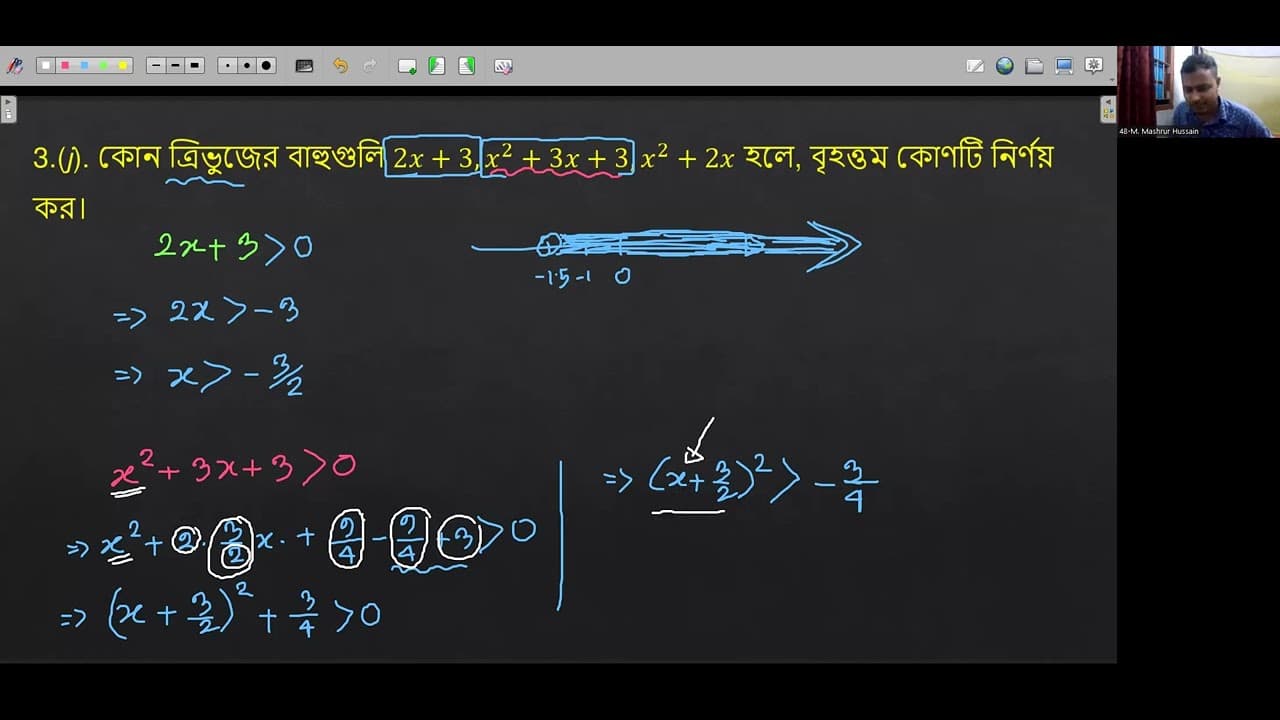 48-M. Mashrur Hussain
3.(j). কোন ত্রিভুজের বাহুগুলি 2x + 3, x² + 3x + 3, x² + 2x হলে, বৃহত্তম কোণটি নির্ণয়
কর।
2x + 3 > 0
-1.5 -1 0
=> 2x > - 3
=> x > - 3/2
x² + 3x + 3 > 0
=> x² + 2 · 3/2 x · + 9/4 - 9/4 + 3 > 0
=> (x + 3/2)² + 3/4 > 0
=> (x + 3/2)² > - 3/4